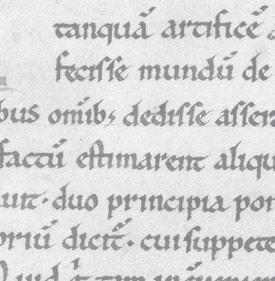 tanquā artificē
fecisse mundū de
bus omīb; dedisse asser
factū estimarent aliqu
uit· duo principia pon
oriū dicit̄· cui suppete